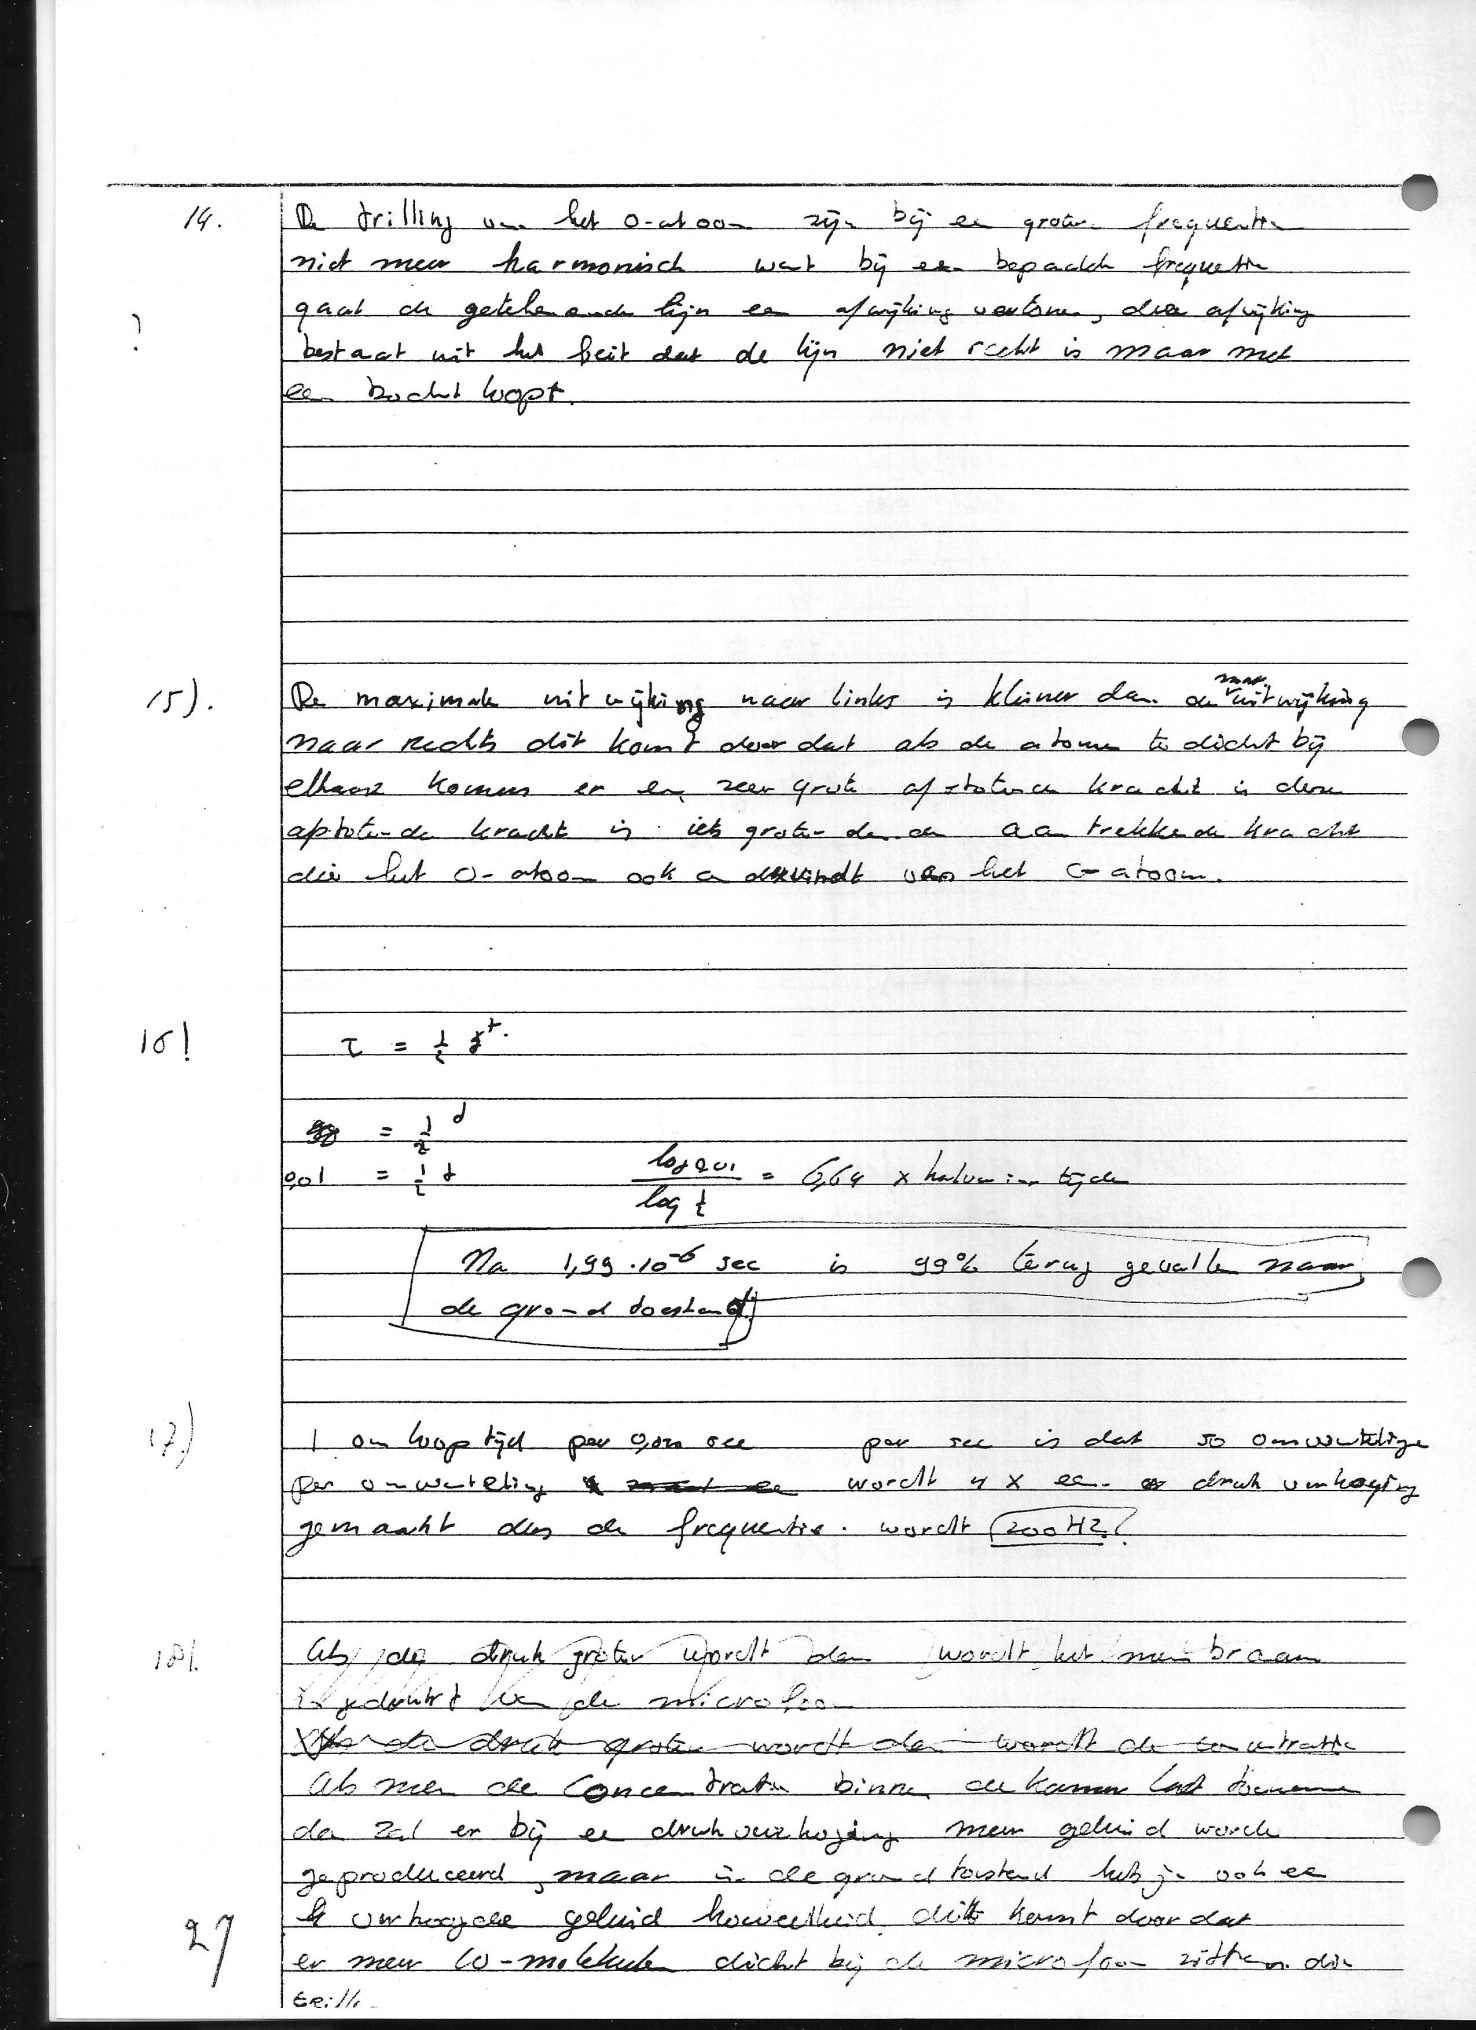 14. De trilling van het O-atoom zijn bij een grotere frequentie
niet meer harmonisch want bij een bepaalde frequentie
gaat de getekende lijn een afwijking vertonen, deze afwijking
?
bestaat uit het feit dat de lijn niet recht is maar met
een bocht loopt.
15). De maximale uitwijking naar links is kleiner dan de max. uitwijking
naar rechts dit komt doordat als de atomen te dicht bij
elkaar komen er een zeer grote afstotende kracht is deze
afstotende kracht is iets groter dan de aantrekkende kracht
die het O-atoom ook ondervindt van het C-atoom.
16) τ = 1/2 t.
= 1/2 t
0,01 = 1/2 t log 0,01 / log 1/2 = 6,64 x halveringstijden
Na 1,99 . 10^-6 sec is 99% terug gevallen naar
de grondtoestand.
17.) 1 omlooptijd per 0,02 sec per sec is dat 50 omwentelingen
per omwenteling wordt 4 x een druk verhoging
gemaakt dus de frequentie wordt 200 HZ.
18). Als de druk groter wordt dan wordt het membraan
gedrukt van de microfoon
Als de druk groter wordt dan wordt de concentratie
Als men de concentratie binnen de kamer laat toenemen
dan zal er bij een drukverhoging meer geluid worden
geproduceerd, maar in de grondtoestand heb je ook een
verhoogde geluid hoeveelheid, dit komt doordat
27
er meer CO-molekulen dicht bij de microfoon zitten die
trillen